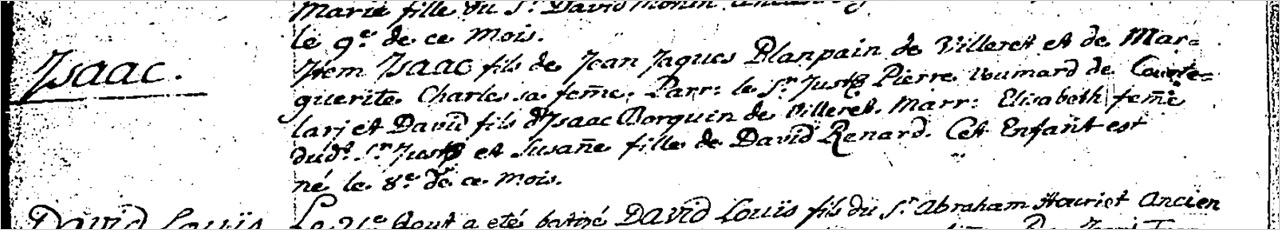 Marie fille du Sr. David Monin
le 9e. de ce Mois.
Isaac.
Item ISAAC fils de Jean Jaques Planpain de Villeret et de Mar=
guerite Charles sa feme. Parr: le Sr. Justs Pierre Voumard de Courte=
lari et David fils d'Isaac Borquin de Villeret. Marr: Elisabeth feme
dudt. Sr. Justs et Susane fille de David Renard. Cet Enfant est
né le 8e. de ce Mois.
David Louïs
Le 21e Aout a eté batisé DAVID Louïs fils du Sr. Abraham Houriet Ancien